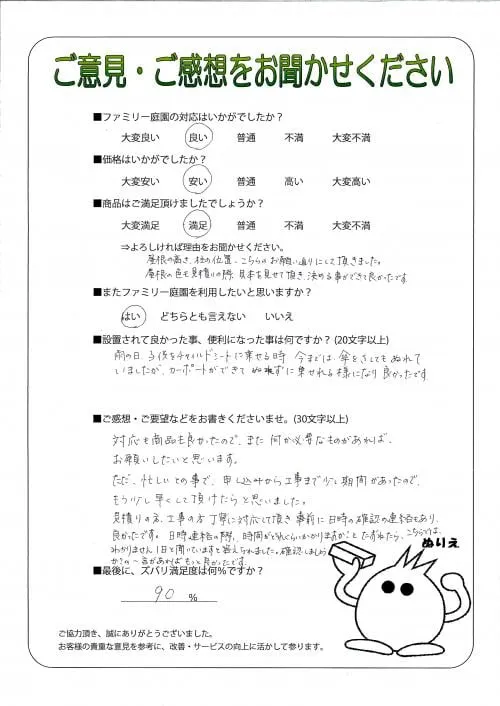 ご意見・ご感想をお聞かせください
■ファミリー庭園の対応はいかがでしたか？
大変良い 良い 普通 不満 大変不満
■価格はいかがでしたか？
大変安い 安い 普通 高い 大変高い
■商品はご満足頂けましたでしょうか？
大変満足 満足 普通 不満 大変不満
⇒よろしければ理由をお聞かせください。
屋根の高さ、柱の位置、こちらのお願い通りにして頂きました。
屋根の色も見積りの際、見本を見せて頂き、決める事ができて良かったです
■またファミリー庭園を利用したいと思いますか？
はい どちらとも言えない いいえ
■設置されて良かった事、便利になった事は何ですか？(20文字以上)
雨の日、子供をチャイルドシートに乗せる時 今までは、傘をさしてもぬれて
いましたが、カーポートができて ぬれずに乗せれる様になり 良かったです
■ご感想・ご要望などをお書きくださいませ。(30文字以上)
対応も商品も良かったので、また何か必要なものがあれば、
お願いしたいと思います。
ただ、忙しいとの事で、申し込みから工事まで少し期間があったので、
もう少し早くして頂けたらと思いました。
見積りの方、工事の方 丁寧に対応して頂き 事前に日時の確認の連絡もあり、
良かったです。日時連絡の際、時間がどれくらいかかりますかと たずねたら、こちらでは、
わかりません 1日と聞いていますと答えられました。確認しましょう
かの一言があればもっと良かったです。
ぬりえ
■最後に、ズバリ満足度は何%ですか？
90 %
ご協力頂き、誠にありがとうございました。
お客様の貴重な意見を参考に、改善・サービスの向上に活かして参ります。